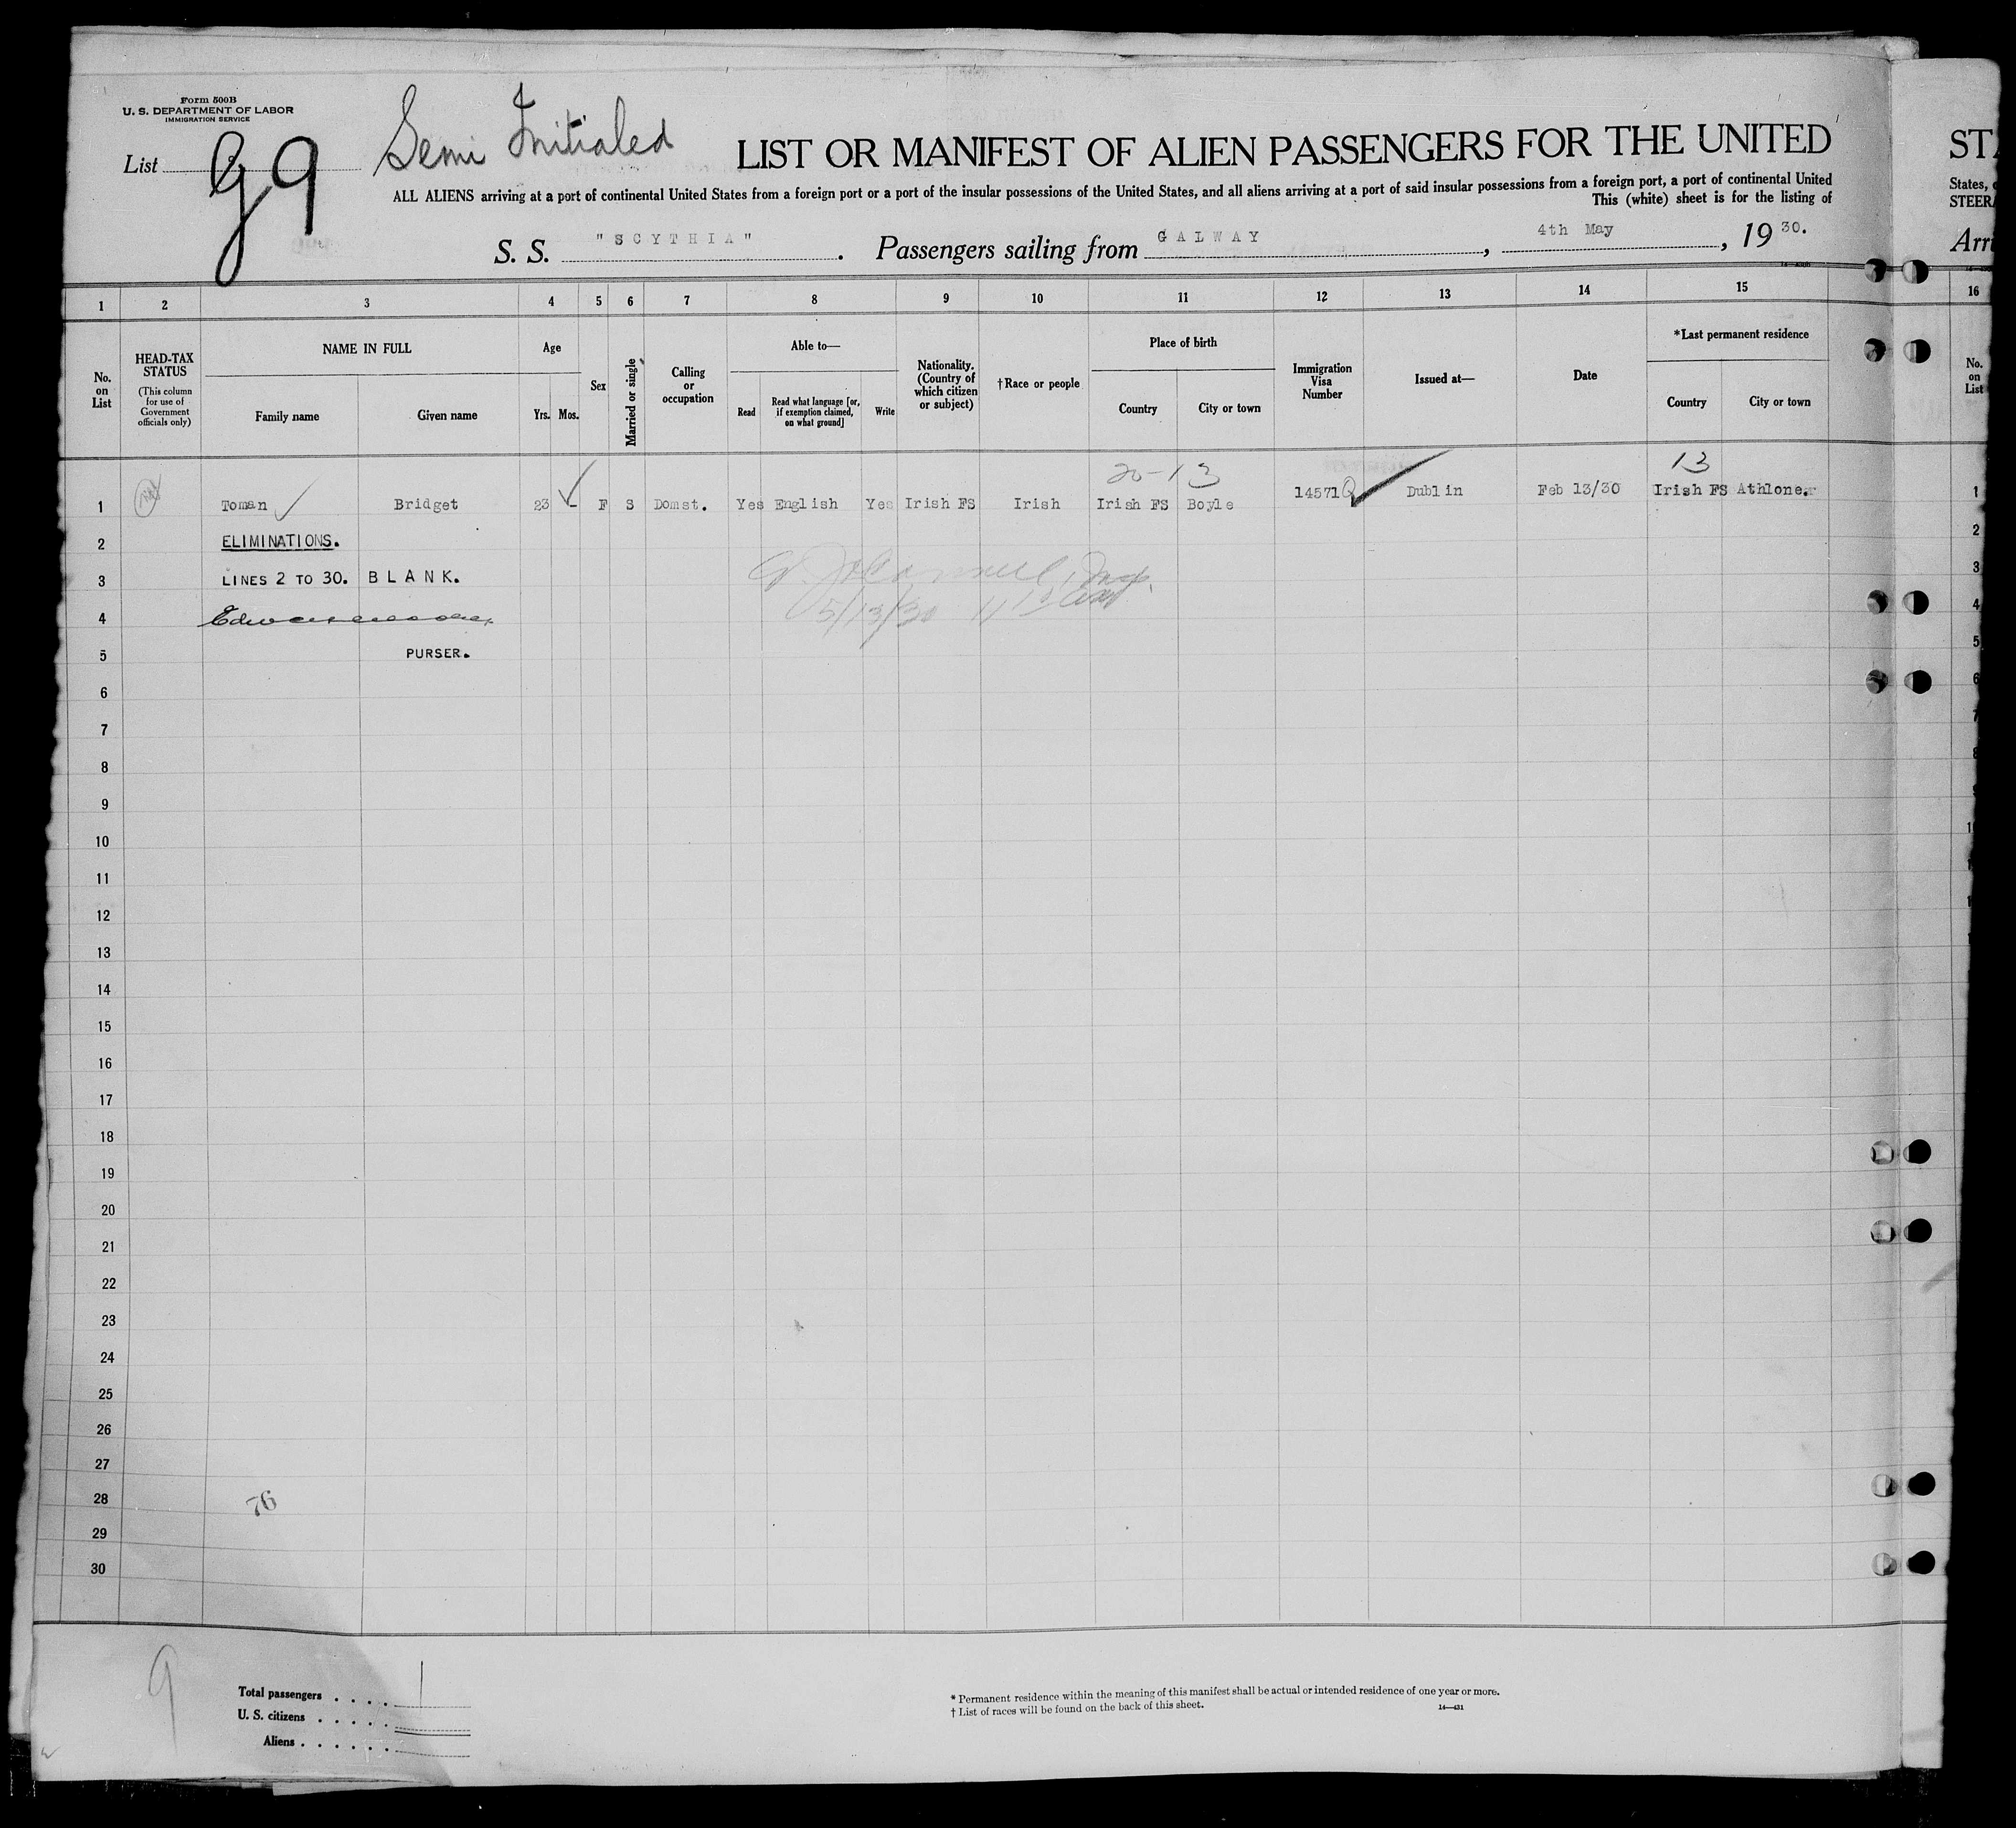 Form 500B
U. S. DEPARTMENT OF LABOR
IMMIGRATION SERVICE
List G 9
Semi Initialed
LIST OR MANIFEST OF ALIEN PASSENGERS FOR THE UNITED
ALL ALIENS arriving at a port of continental United States from a foreign port or a port of the insular possessions of the United States, and all aliens arriving at a port of said insular possessions from a foreign port, a port of continental United
This (white) sheet is for the listing of
S. S. "SCYTHIA". Passengers sailing from GALWAY, 4th May, 1930.
STA
States,
STEER
Arri
1 2 3 4 5 6 7 8 9 10 11 12 13 14 15 16
No. on List
HEAD-TAX STATUS
(This column for use of Government officials only)
NAME IN FULL
Family name Given name
Age
Yrs. Mos.
Sex
Married or single
Calling or occupation
Able to—
Read
Read what language [or, if exemption claimed, on what ground]
Write
Nationality. (Country of which citizen or subject)
†Race or people
Place of birth
Country City or town
Immigration Visa Number
Issued at—
Date
*Last permanent residence
Country City or town
No. on List
20-13 13
1 Toman Bridget 23 - F S Domst. Yes English Yes Irish FS Irish Irish FS Boyle 14571 Q Dublin Feb 13/30 Irish FS Athlone. 1
2 ELIMINATIONS. 2
3 LINES 2 TO 30. BLANK. 3
4 4
5/13/30
5 PURSER. 5
6 6
7 7
8
9
10
11
12
13
14
15
16
17
18
19
20
21
22
23
24
25
26
27
28 76
29
30
9
Total passengers . . . . 1
U. S. citizens . . . . .
Aliens . . . . . .
* Permanent residence within the meaning of this manifest shall be actual or intended residence of one year or more.
† List of races will be found on the back of this sheet.
14—431